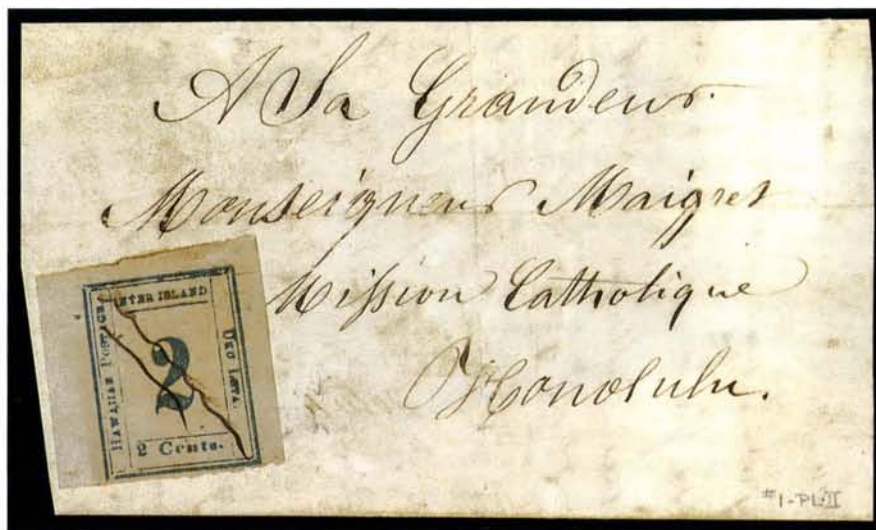 A Sa Grandeur.
Monseigneur Maigret
Mission Catholique
Honolulu.
INTER ISLAND
HAWAIIAN POSTAGE.
2
UKU LETA.
2 Cents.
#1-PL.II